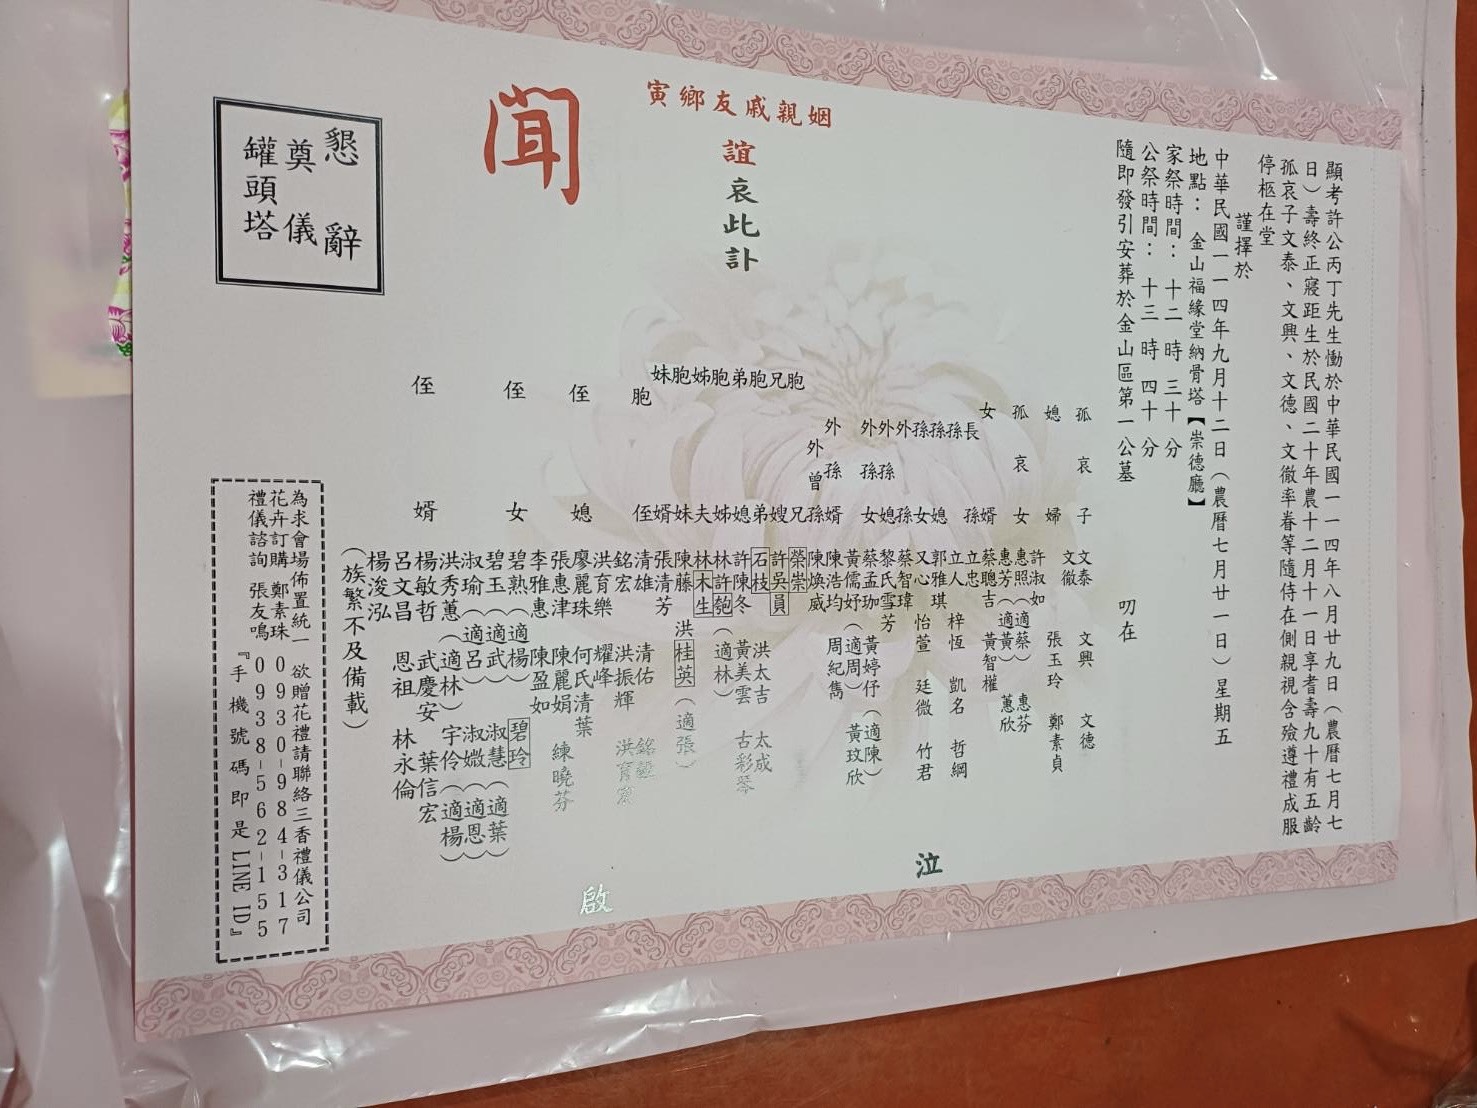 顯考許公丙丁先生慟於中華民國一一四年八月廿九日（農曆七月七
日）壽終正寢距生於民國二十年農十二月十一日享耆壽九十有五齡
孤哀子文泰、文興、文德、文徹率眷等隨侍在側親視含殮遵禮成服
停柩在堂
謹擇於
中華民國一一四年九月十二日（農曆七月廿一日）星期五
地點：金山福緣堂納骨塔【崇德廳】
家祭時間：十二時三十分
公祭時間：十三時四十分
隨即發引安葬於金山區第一公墓
叨在
孤哀子 文泰 文興 文德
文徹
媳婦 張玉玲 鄭素貞
許淑如
孤哀女 惠照（適蔡） 惠芬
惠芳（適黃） 蕙欣
女婿 蔡聰吉 黃智權
長孫 立忠
孫 立人 梓恆 凱名 哲綱
孫媳 郭雅琪
孫女 又心 怡萱 廷微 竹君
外孫 蔡智瑋
外孫媳 黎氏雪芳
外孫女 蔡孟珈 黃婷伃（適陳）
黃儒妤（適周） 黃玟欣
外孫婿 陳浩均 周紀雋
外曾孫 陳煥威
胞兄 榮崇
嫂 許吳員
胞弟 石枝 洪太吉 太成
弟媳 許陳冬 黃美雲 古彩琴
胞姊 林許匏（適林）
姊夫 林木生
胞妹 陳藤 洪桂英（適張）
妹婿 張清芳
胞侄 清雄 清佑 銘毅
銘宏 洪振輝 洪育寬
洪育樂 耀峰
侄媳 廖麗珠 何氏清葉
張惠津 陳麗娟 練曉芬
李雅惠 陳盈如
侄女 碧熟（適楊） 碧玲
碧玉（適武） 淑慧（適葉）
淑瑜（適呂） 淑媺（適恩）
洪秀蕙（適林） 宇伶（適楊）
侄婿 楊敏哲 武慶安 葉信宏
呂文昌 恩祖 林永倫
楊浚泓
（族繁不及備載）
姻親戚友鄉寅
誼哀此訃
聞
泣
啟
懇辭
奠儀
罐頭塔
為求會場佈置統一 欲贈花禮請聯絡三香禮儀公司
花卉訂購 鄭素珠 0930-984-317
禮儀諮詢 張友鳴 0938-562-155
『手機號碼即是LINE ID』